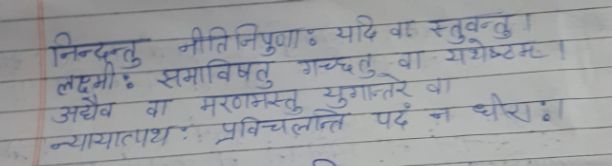 निन्दन्तु नीतिनिपुणाः यदि वा स्तुवन्तु।
लक्ष्मीः समाविषतु गच्छतु वा यथेष्टम।
अद्यैव वा मरणमस्तु युगान्तरे वा
न्यायात्पथः प्रविचलन्ति पदं न धीराः।